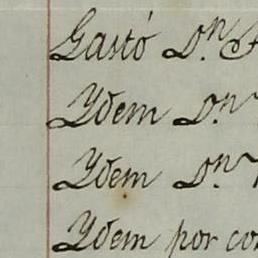 Gastó Dn.
Ydem Dn.
Ydem Dn.
Ydem por